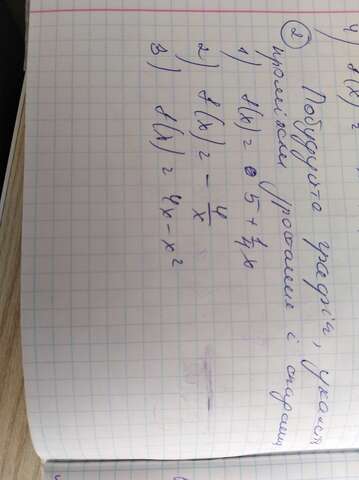 4) f(x) =
② Побудуйте графік, укажіть
проміжки зростання і спадання
1) f(x) = 5 + 1/4 x
2) f(x) = - 4/x
3) f(x) = 4x - x²